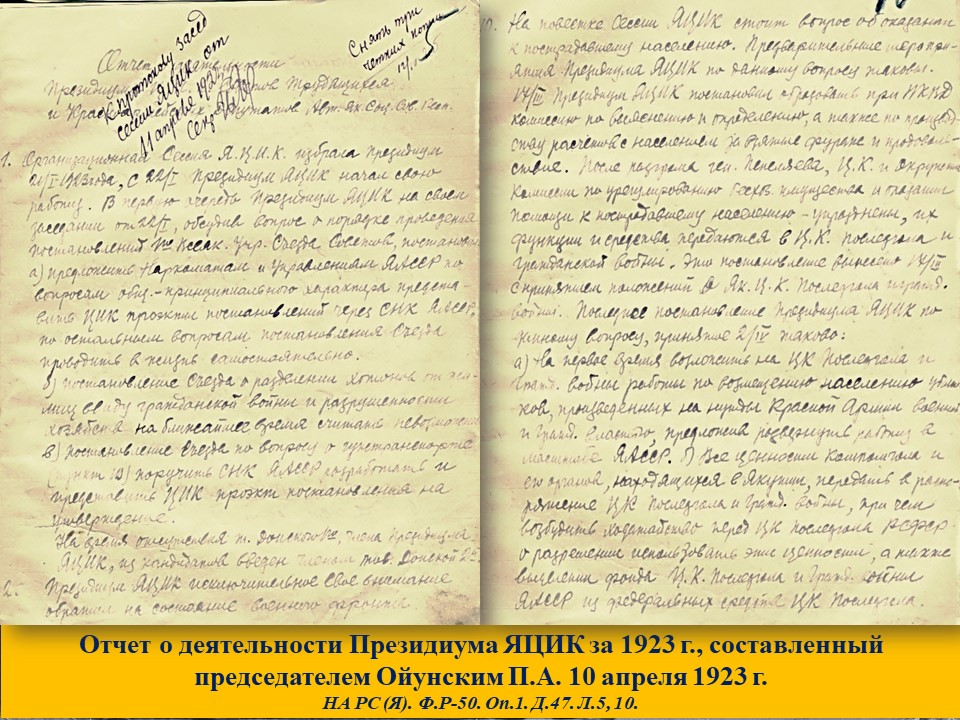 Отчет о деятельности
Президиума
и Красноарм. Депутатов Авт. Як. Соц. Сов. Респ.
К протоколу засед.
сессии ЯЦИК от
11 апреля 1923
Снять три
четких копии
1. Организационная Сессия Я.Ц.И.К. избрала Президиум
21/I-1923 года, с 22/I Президиум ЯЦИК начал свою
работу. В первую очередь Президиум ЯЦИК на своем
заседании от 22/I, обсудив вопрос о порядке проведения
постановлений Учр. Съезда Советов, постановил
а) предложить Наркоматам и Управлениям ЯАССР по
вопросам общ.-принципиального характера представ-
вить ЦИК проэкты постановлений через СНК ЯАССР,
по остальным вопросам постановления Съезда
проводить в жизнь самостоятельно.
б) постановление Съезда о разделении хотонов от жи-
лищ ввиду гражданской войны и разрушенности
хозяйства на ближайшее время считать невозможн
в) постановление Съезда по вопросу о гужтранспорте
(пункт 19) поручить СНК ЯАССР разработать и
представить ЦИК проэкт постановления на
утверждение.
На время отсутствия т. Донского члена Президиума
ЯЦИК, из кандидатов введен членом тов. Донской 2й
2. Президиум ЯЦИК исключительное свое внимание
обратил на состояние военного фронта
10. На повестке Сессии ЯЦИК стоит вопрос об оказании
к пострадавшему населению. Предварительные меропри-
ятия Президиума ЯЦИК по данному вопросу таковы.
17/II Президиум ЯЦИК постановил образовать при НКВД
комиссию по выяснению и определению, а также по производ
ству расчетов с населением за взятые фураж и продоволь-
ствие. После разгрома ген. Пепеляева, Ц.К. и окружные
комиссии по урегулированию имущества и оказании
помощи к пострадавшему населению - упразднены, их
функции и средства передаются в Ц.К. Последгола и
гражданской войны. Это постановление вынесено 17/III
с принятием положений о Як. Ц.К. Последгола и гражд.
войны. Последнее постановление Президиума ЯЦИК по
данному вопросу, принятое 2/IV таково:
а) На первое время возложить на ЦК Последгола и
Гражд. войны работы по возмещению населению убыт-
ков, произведенных на нужды Красной Армии военной
и Гражд. властью, предложив развернуть работу в
масштабе ЯАССР. б) Все ценности Компомгола и
его органов, находящихся в Якутии, передать в распо-
ряжение ЦК Последгола и Гражд. войны, при чем
возбудить ходатайство перед ЦК последгола РСФСР
о разрешении использовать эти ценности, а также
выделении фонда Ц.К. Последгола и Гражд. войны
ЯАССР из федеральных средств ЦК Последгола.
Отчет о деятельности Президиума ЯЦИК за 1923 г., составленный
председателем Ойунским П.А. 10 апреля 1923 г.
НА РС (Я). Ф.Р-50. Оп.1. Д.47. Л.5, 10.